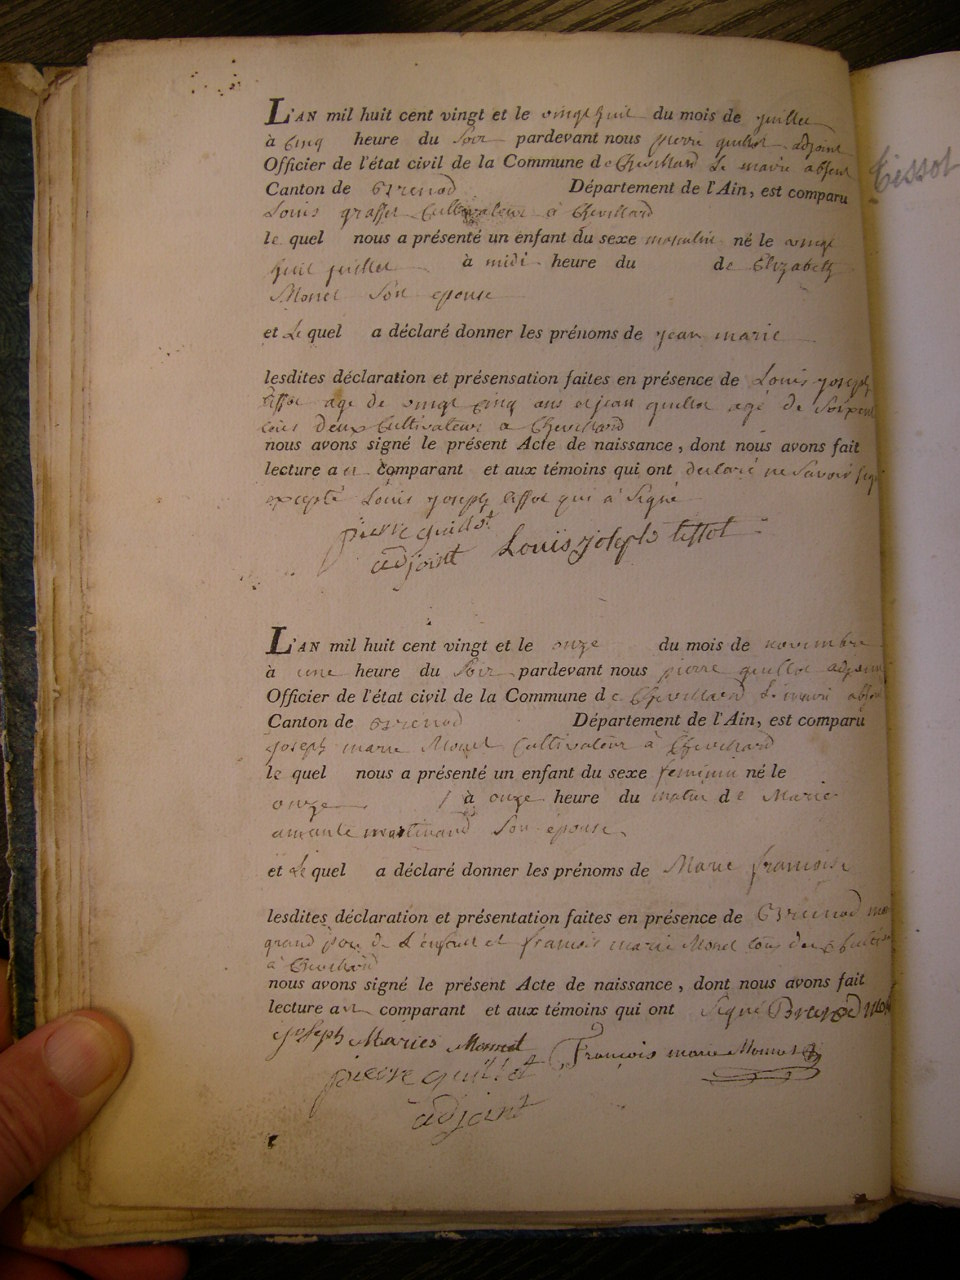 L'AN mil huit cent vingt et le vingt huit du mois de juillet
à cinq heure du Soir pardevant nous pierre guillot adjoint
Officier de l'état civil de la Commune de Chevillard Le maire absent
Canton de Brenod Département de l'Ain, est comparu
Louis grasset Cultivateur à Chevillard
le quel nous a présenté un enfant du sexe masculin né le vingt
huit juillet à midi heure du de Elizabeth
Monet Son epouse
et Le quel a déclaré donner les prénoms de jean marie
lesdites déclaration et présensation faites en présence de Louis joseph
tissot age de vingt cinq ans et jean guillot agé de
tous deux Cultivateurs a Chevillard
nous avons signé le présent Acte de naissance, dont nous avons fait
lecture au comparant et aux témoins qui ont declaré ne Savoir
excepté Louis joseph tissot qui a Signé
pierre guillot
adjoint Louis joseph tissot
Tissot
L'AN mil huit cent vingt et le onze du mois de novembre
à une heure du Soir pardevant nous pierre guillot adjoint
Officier de l'état civil de la Commune de Chevillard Le maire absent
Canton de Brenod Département de l'Ain, est comparu
joseph marie Monet Cultivateur à Chevillard
le quel nous a présenté un enfant du sexe feminin né le
onze à onze heure du matin de Marie
Son épouse
et Le quel a déclaré donner les prénoms de Marie francoise
lesdites déclaration et présentation faites en présence de
grand pere de L'enfant et francois marie Monet tous deux
à Chevillard
nous avons signé le présent Acte de naissance, dont nous avons fait
lecture au comparant et aux témoins qui ont Signé
joseph Maries Monnet François marie Monnet
pierre guillot
adjoint